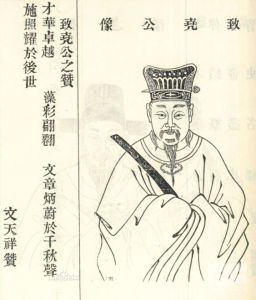 致堯公像
致堯公之贊
才華卓越　藻彩翩翩　文章炳蔚於千秋聲
施照耀於後世
文天祥贊